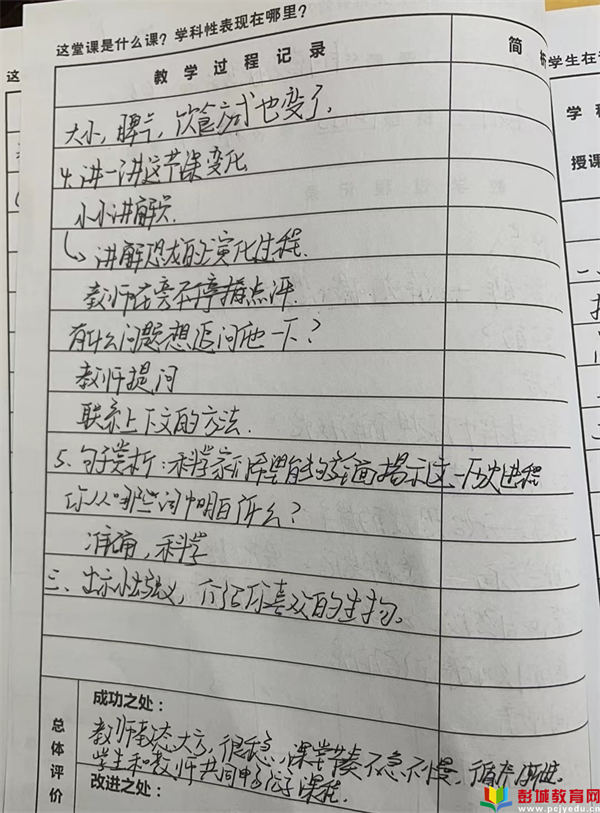 这堂课是什么课？学科性表现在哪里？
教学过程记录
简
大小，脾气，饮食方式也变了。
4. 讲一讲这节课变化
小小讲解员
讲解恐龙的演化过程.
教师在旁不停指点评.
有什么问题想追问他一下？
教师提问
联系上下文的方法.
5. 句子赏析：科学家们希望能够全面揭示这一历史进程
你从哪些词中明白什么？
准确，科学
三、出示小练笔，介绍你喜欢的生物。
总体评价
成功之处：
教师教态大方，很稳，课堂节奏不急不慢，循序渐进.
学生和教师共同 课程.
改进之处：
这
学生在
学科
授课
彭城教育网
www.pcjyedu.cn